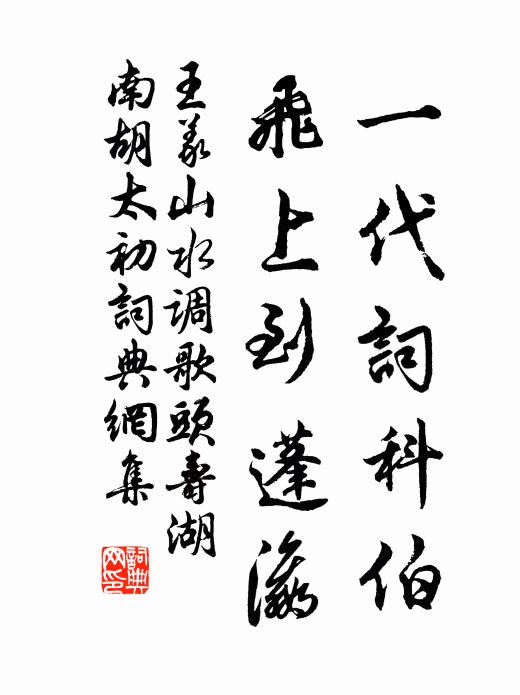 一代詞科伯
飛上到蓬瀛
王義山水調歌頭壽湖
南胡太初詞典網集
詞典网印